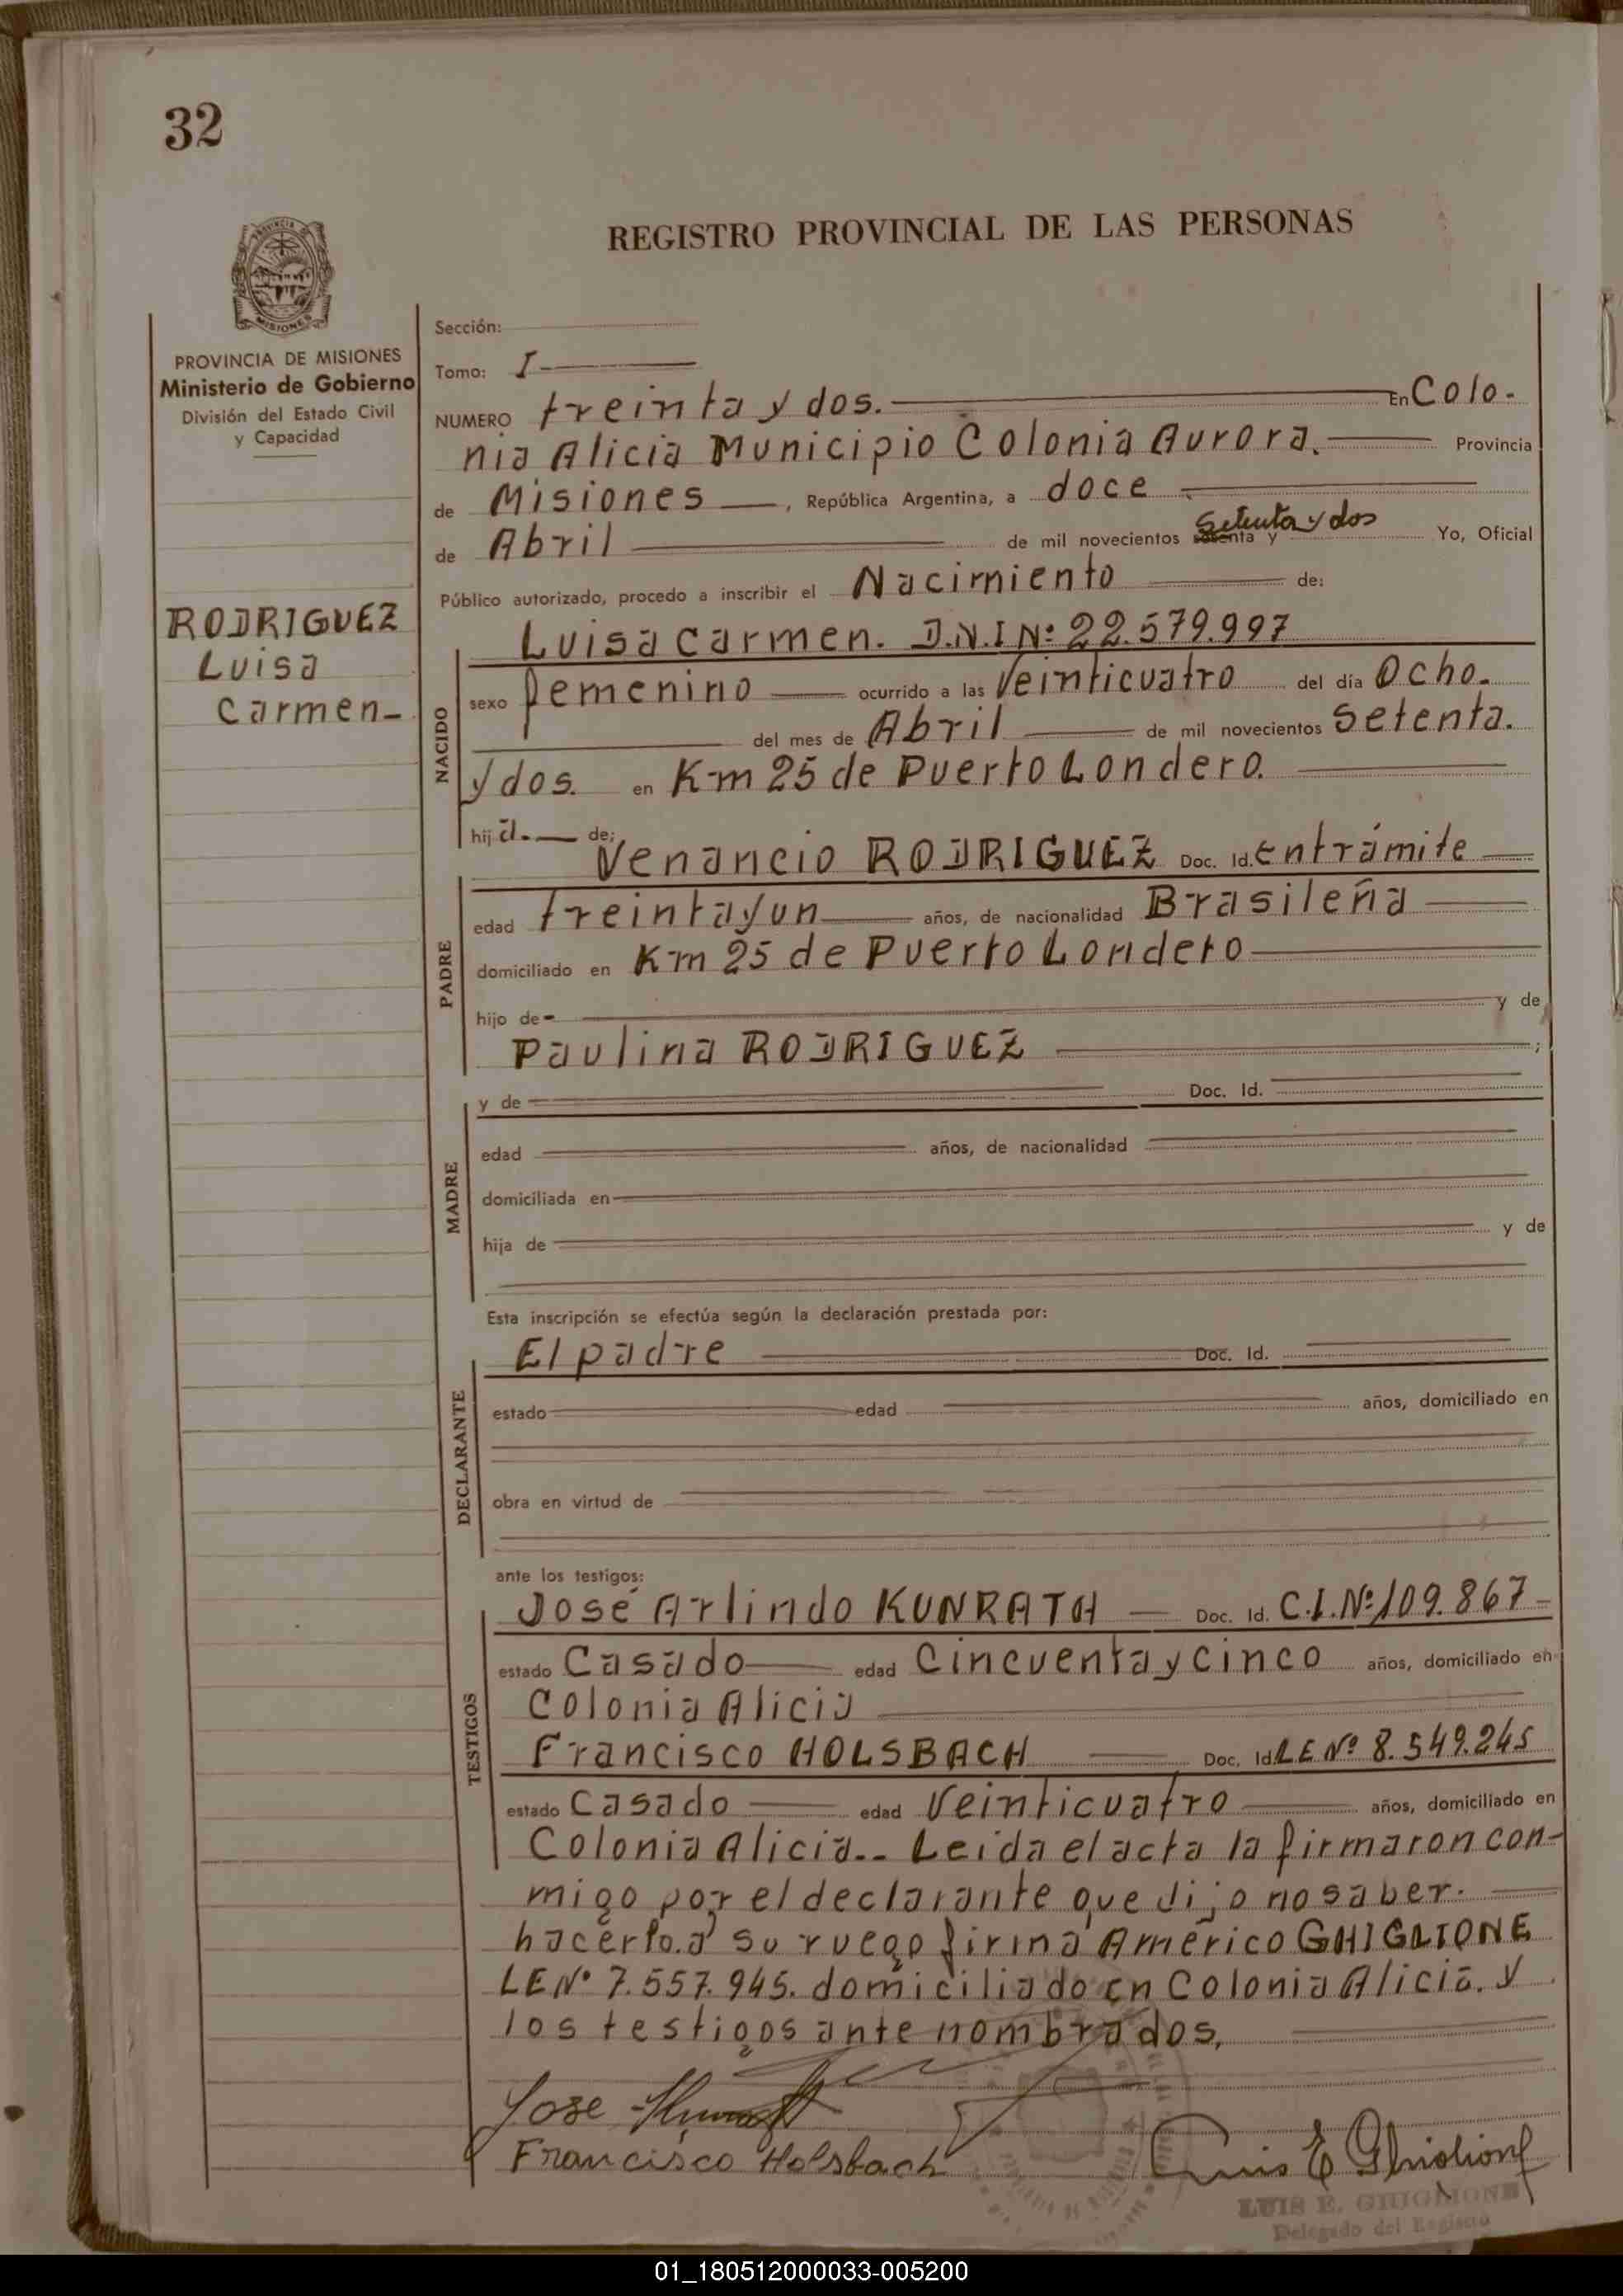 32
REGISTRO PROVINCIAL DE LAS PERSONAS
PROVINCIA DE
MISIONES
PROVINCIA DE MISIONES
Ministerio de Gobierno
División del Estado Civil
y Capacidad
RODRIGUEZ
Luisa
Carmen-
Sección:
Tomo: I
NUMERO treinta y dos. En Colo-
nia Alicia Municipio Colonia Aurora. Provincia
de Misiones , República Argentina, a doce
de Abril de mil novecientos setenta y dos Yo, Oficial
Público autorizado, procedo a inscribir el Nacimiento de:
NACIDO
Luisa Carmen. D.N.I Nº 22.579.997
sexo femenino ocurrido a las Veinticuatro del día Ocho.
del mes de Abril de mil novecientos setenta.
y dos. en Km 25 de Puerto Londero.
hija. de:
PADRE
Venancio RODRIGUEZ Doc. Id. En trámite
edad treinta y un años, de nacionalidad Brasileña
domiciliado en Km 25 de Puerto Londero
hijo de - y de
Paulina RODRIGUEZ ;
MADRE
y de Doc. Id.
edad años, de nacionalidad
domiciliada en
hija de y de
Esta inscripción se efectúa según la declaración prestada por:
DECLARANTE
El padre Doc. Id.
estado edad años, domiciliado en
obra en virtud de
ante los testigos:
TESTIGOS
José Arlindo KUNRATH Doc. Id. C.I. Nº 109.867-
estado Casado edad Cincuenta y cinco años, domiciliado en
Colonia Alicia
Francisco HOLSBACH Doc. Id. LE Nº 8.549.245
estado Casado edad Veinticuatro años, domiciliado en
Colonia Alicia.. Leida el acta la firmaron con-
migo por el declarante que dijo no saber.
hacerlo.a su ruego firma Américo GHIGLIONE
LE Nº 7.557.945. domiciliado en Colonia Alicia. y
los testigos ante nombrados.
Jose
Francisco Holsbach
Luis E Ghiglione
LUIS E. GHIGLIONE
Delegado del Registro
01_180512000033-005200